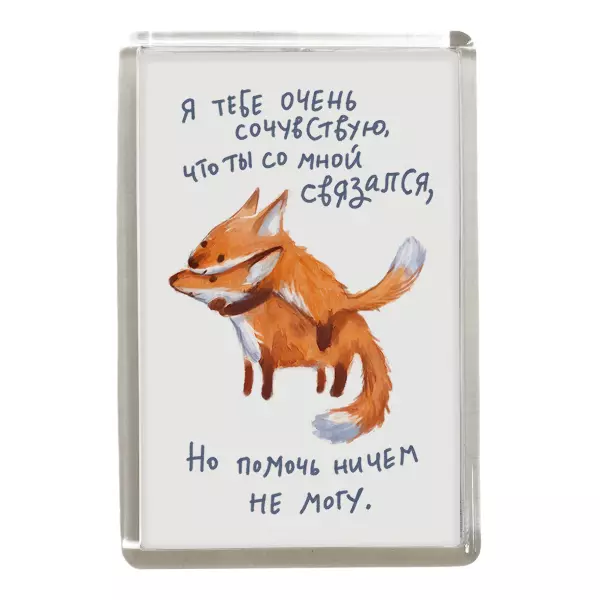 Я ТЕБЕ ОЧЕНЬ
СОЧУВСТВУЮ,
ЧТО ТЫ СО МНОЙ
СВЯЗАЛСЯ,
Но помочь ничем
не могу.